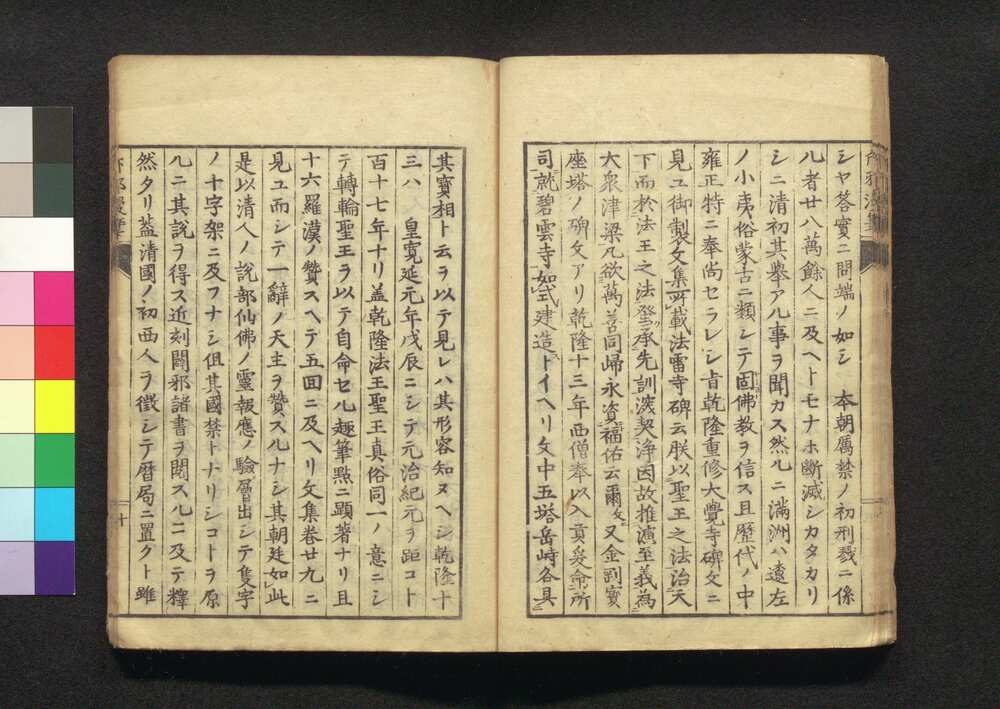 シヤ答實ニ問端ノ如シ　本朝厲禁ノ初刑戮ニ係
ル者廿八萬餘人ニ及ヘトモナホ斷滅シカタカリ
シニ清初其擧アル事ヲ聞カス然ルニ満洲ハ遠左
ノ小夷俗蒙古ニ類シテ固佛教ヲ信ス且歴代ノ中
雍正特ニ奉尚セラレシ㫖乾隆重修大覺寺碑文ニ
見ユ御製文集所載法雷寺碑云朕以聖王之法治天
下而於法王之法發承先訓濊契浄因故推演至義為
大衆津梁凡欲萬善同歸永資福佑云爾文又金剛寳
座塔ノ碑文アリ乾隆十三年西僧奉以入貢爰命所
司就碧雲寺如式建造トイヘリ文中五塔岳峙各具
其寳相ト云ヲ以テ見レハ其形容知ヌヘシ乾隆十
三ハ　皇寛延元年戊辰ニシテ元治紀元ヲ距コト
百十七年ナリ盖乾隆法王聖王真俗同一ノ意ニシ
テ轉輪聖王ヲ以テ自命セル趣筆點ニ顕著ナリ且
十六羅漢ノ賛スヘテ五回ニ及ヘリ文集巻廿九ニ
見ユ而シテ一辭ノ天主ヲ賛スルナシ其朝廷如此
是以清人ノ説部仙佛ノ靈報應ノ驗層出シテ隻字
ノ十字架ニ及フナシ但其國禁トナリシコトヲ原
ルニ其説ヲ得ス近刻闢邪諸書ヲ閲スルニ及テ釋
然タリ葢清國ノ初西人ヲ徴シテ暦局ニ置クト雖
十